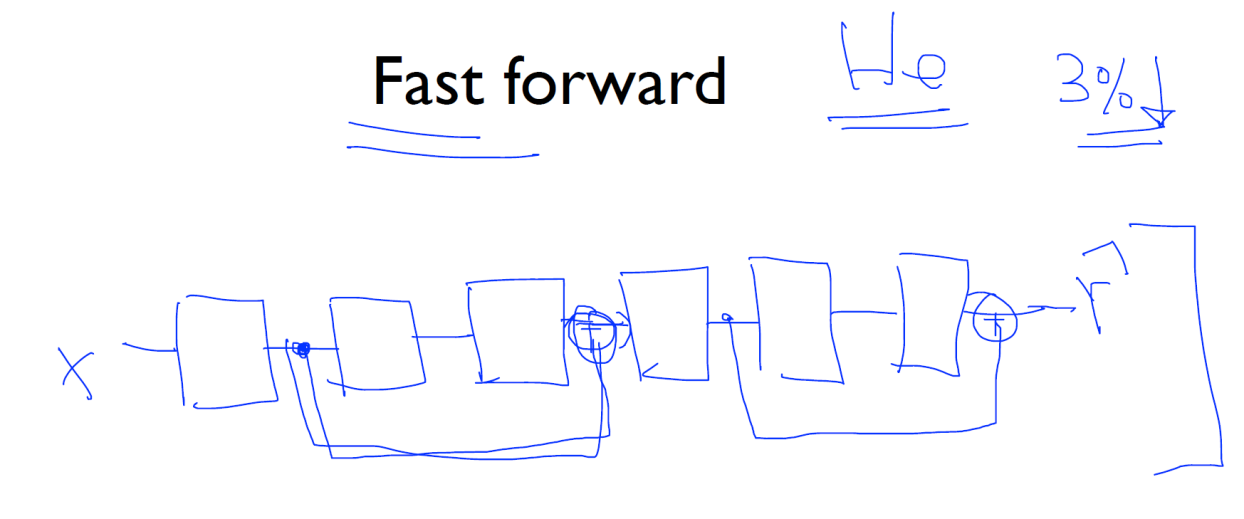 Fast forward He 3%↓
X + + r̂